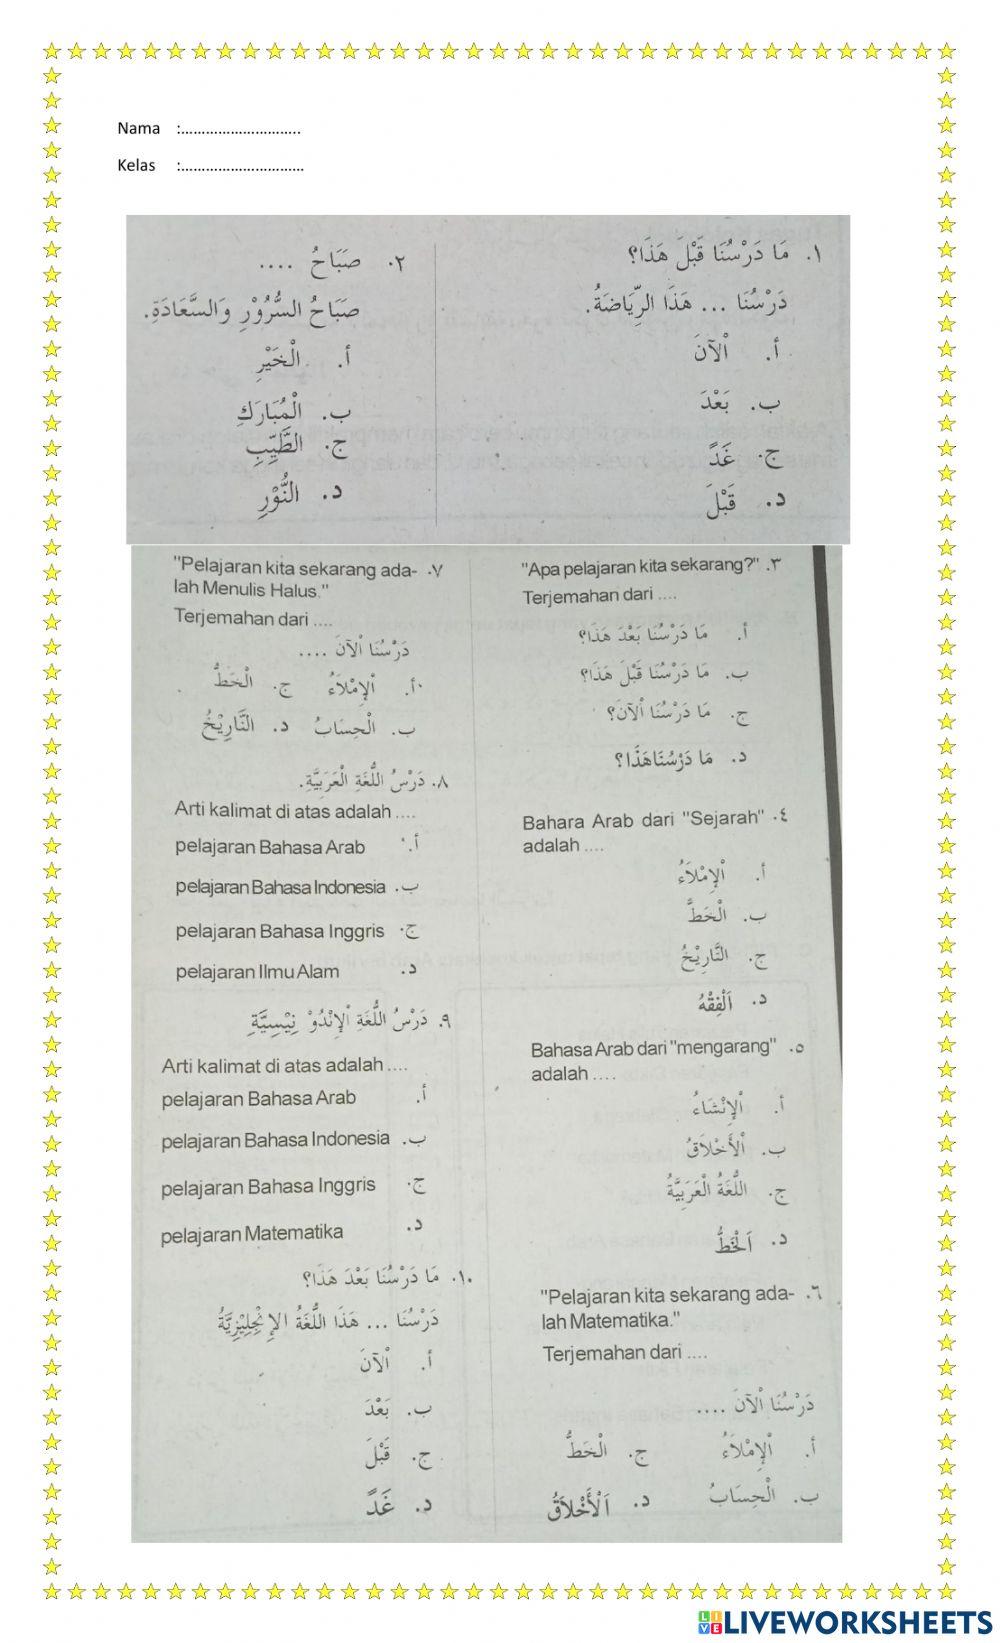 Nama :..............................
Kelas :..............................
١. مَا دَرْسُنَا قَبْلَ هَذَا؟
دَرْسُنَا ... هَذَا الرِّيَاضَةُ.
أ. اْلآنَ
ب. بَعْدَ
ج. غَدً
د. قَبْلَ
٢. صَبَاحُ ....
صَبَاحُ السُّرُوْرِ وَالسَّعَادَةِ.
أ. الْخَيْرِ
ب. الْمُبَارَكِ
ج. الطَّيِّبِ
د. النُّوْرِ
٣. "Apa pelajaran kita sekarang?"
Terjemahan dari ....
أ. مَا دَرْسُنَا بَعْدَ هَذَا؟
ب. مَا دَرْسُنَا قَبْلَ هَذَا؟
ج. مَا دَرْسُنَا اْلآنَ؟
د. مَا دَرْسُنَاهَذَا؟
٤. Bahara Arab dari "Sejarah"
adalah ....
أ. اْلإِمْلَاءُ
ب. الْخَطُّ
ج. التَّارِيْخُ
د. اَلْفِقْهُ
٥. Bahasa Arab dari "mengarang"
adalah ....
أ. اْلإِنْشَاءُ
ب. اْلأَخْلَاقُ
ج. اللُّغَةُ الْعَرَبِيَّةُ
د. اَلْخَطُّ
٦. "Pelajaran kita sekarang ada-
lah Matematika."
Terjemahan dari ....
دَرْسُنَا اْلآنَ ....
أ. اْلإِمْلَاءُ ج. الْخَطُّ
ب. الْحِسَابُ د. اَلْأَخْلَاقُ
٧. "Pelajaran kita sekarang ada-
lah Menulis Halus."
Terjemahan dari ....
دَرْسُنَا اْلآنَ ....
أ. اْلإِمْلَاءُ ج. الْخَطُّ
ب. الْحِسَابُ د. التَّارِيْخُ
٨. دَرْسُ اللُّغَةِ الْعَرَبِيَّةِ.
Arti kalimat di atas adalah ....
أ. pelajaran Bahasa Arab
ب. pelajaran Bahasa Indonesia
ج. pelajaran Bahasa Inggris
د. pelajaran Ilmu Alam
٩. دَرْسُ اللُّغَةِ اْلإِنْدُوْ نِيْسِيَّةِ
Arti kalimat di atas adalah ....
أ. pelajaran Bahasa Arab
ب. pelajaran Bahasa Indonesia
ج. pelajaran Bahasa Inggris
د. pelajaran Matematika
١٠. مَا دَرْسُنَا بَعْدَ هَذَا؟
دَرْسُنَا ... هَذَا اللُّغَةُ الإِنْجِلِيْزِيَّةُ
أ. اْلآنَ
ب. بَعْدَ
ج. قَبْلَ
د. غَدً
LIVEWORKSHEETS